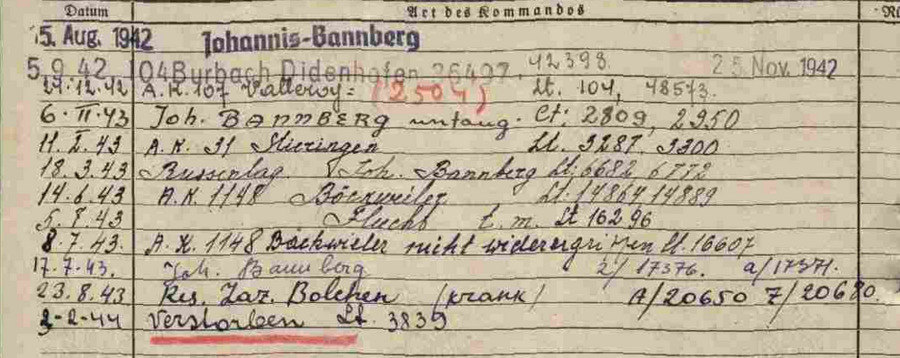 Datum Art des Kommandos
5. Aug. 1942 Johannis-Bannberg
5.9.42. 104 Burbach Didenhofen 36497. 42398. 25. Nov. 1942
29.12.42 A.K. 107 Valleroy= (2504) Lt. 104, 48573.
6.II.43 Joh. BANNBERG untaug. Lt: 2809, 2950
11.I.43 A.K. 31 Stieringen Lt. 3287, 3300
18.3.43 Russenlag Joh. Bannberg Lt: 6682 6772
14.6.43 A.K. 1148 Böckweiler Lt. 14864, 14889
5.7.43 Flucht t.m. Lt 16296
8.7.43. A.K. 1148 Böckwieler nicht widerergriffen Lt. 16607
17.7.43. Joh. Bannberg 2/ 17376. a/17371.
23.8.43 Res. Laz. Bolchen (krank) A/20650 Z/20680.
2-2-44 Verstorben Lt. 3839